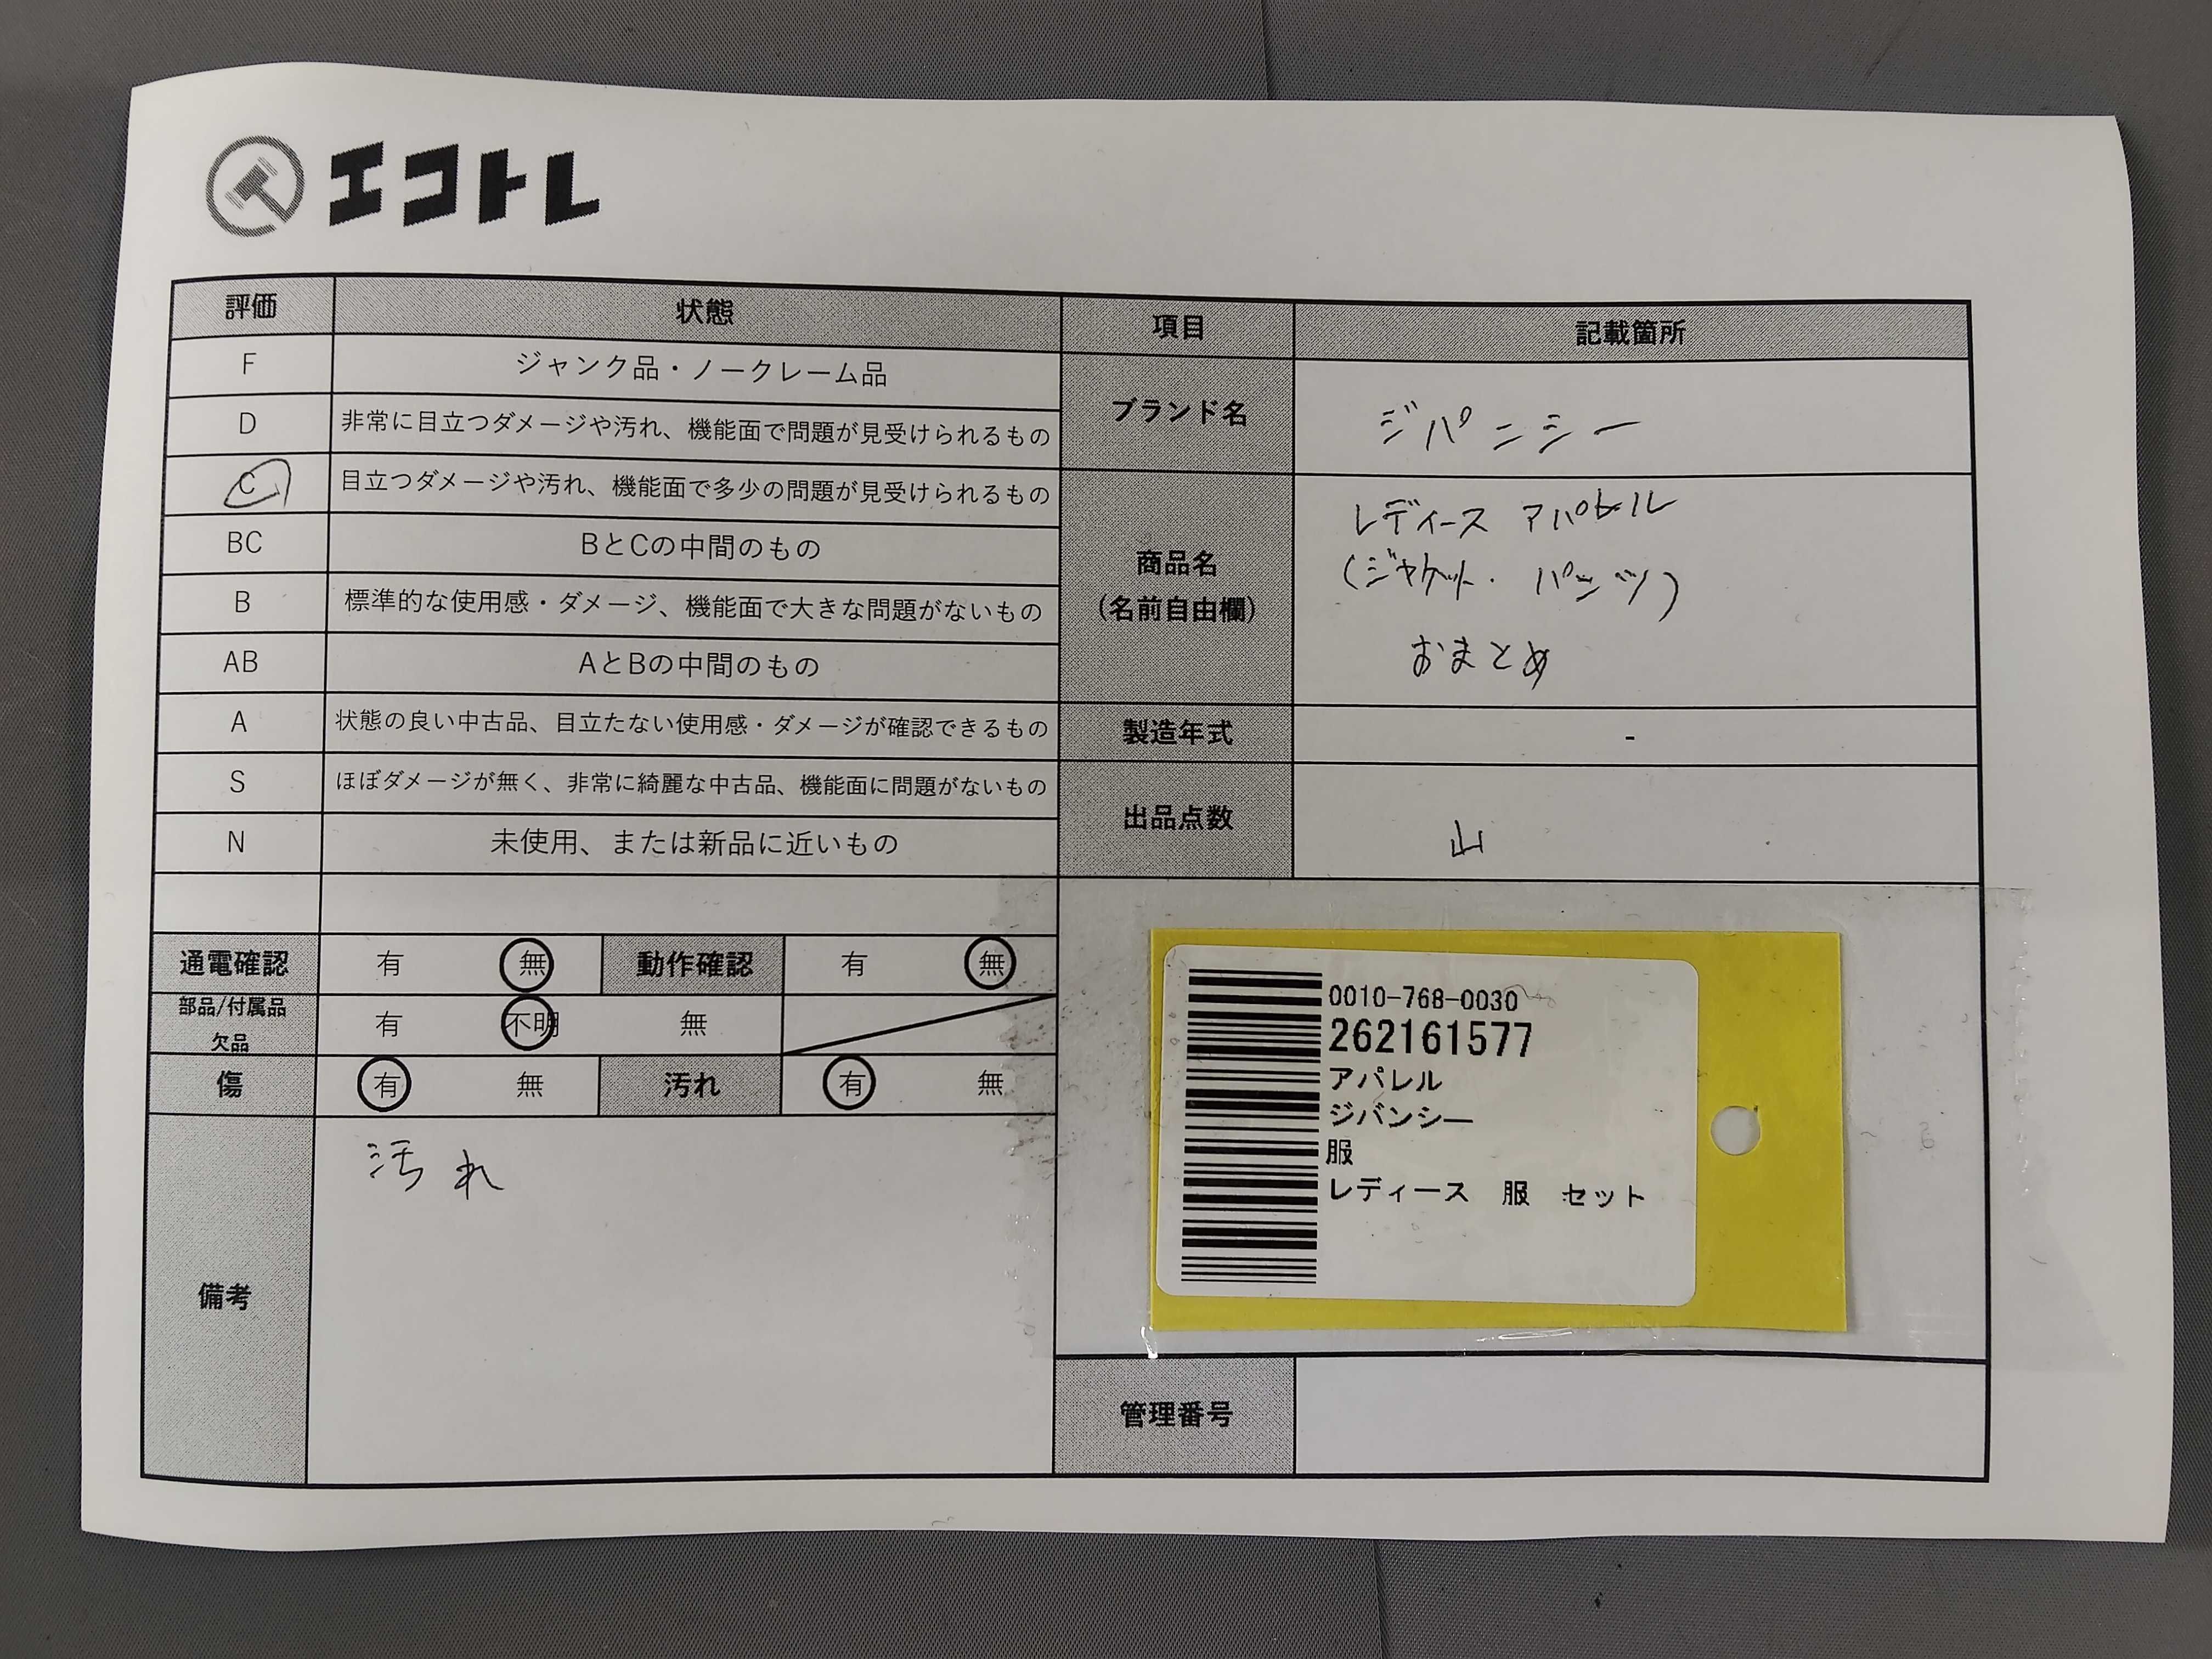 エコトレ
評価 状態
F ジャンク品・ノークレーム品
D 非常に目立つダメージや汚れ、機能面で問題が見受けられるもの
C 目立つダメージや汚れ、機能面で多少の問題が見受けられるもの
BC BとCの中間のもの
B 標準的な使用感・ダメージ、機能面で大きな問題がないもの
AB AとBの中間のもの
A 状態の良い中古品、目立たない使用感・ダメージが確認できるもの
S ほぼダメージが無く、非常に綺麗な中古品、機能面に問題がないもの
N 未使用、または新品に近いもの
通電確認 有 無 動作確認 有 無
部品/付属品
欠品 有 不明 無
傷 有 無 汚れ 有 無
備考 汚れ
項目 記載箇所
ブランド名 ジパンシー
商品名
(名前自由欄)
レディース アパレル
(ジャケット・パンツ)
おまとめ
製造年式 -
出品点数 山
0010-768-0030
262161577
アパレル
ジバンシー
服
レディース 服 セット
管理番号